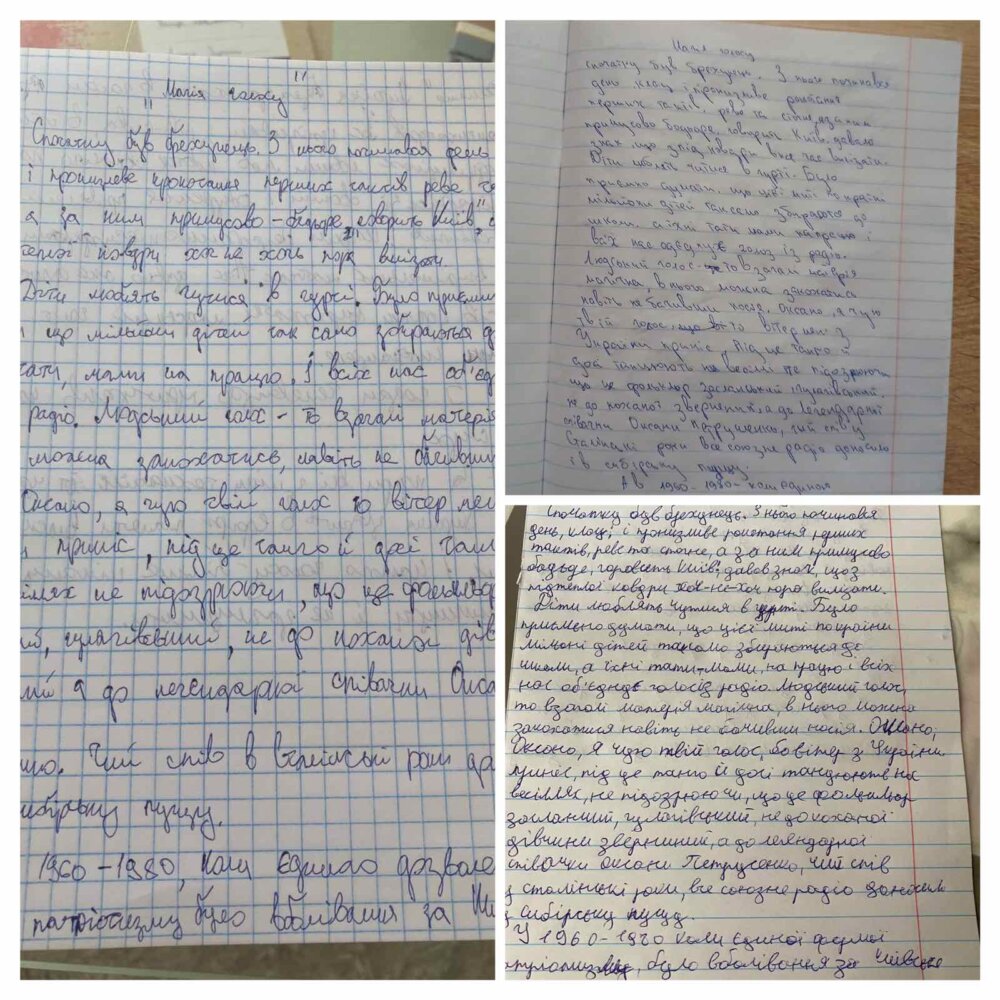 "Магія голосу"
Спочатку був брехунець. З нього починався день
і пронизливе перших тактів реве та
а за ним примусово-бадьоре "говорить Київ"
теплої ковдри хоч не хоч пора вилізати.
Діти люблять чутися в гурті. Було приємно
що мільйони дітей так само збираються д
тати, мами на працю. І всіх нас об'єд
радіо. Людський голос - то взагалі матерія
можна закохатись, навіть не бачивши
Оксано, я чую твій голос бо вітер мені
приніс, під це танго й досі
не підозрюючи, що це фольклор
гулагівський, не до коханої дів
а до легендарної співачки Окса
Чий спів в сталінські роки до
сибірську пущу.
1960-1980, коли єдиною дозволе
патріотизму було вболівання за Ки
Магія голосу
спочатку був брехунець. З нього починався
день клац і пронизливе
перших тактів, реве та стогне,а за ним
примусово бадьоре, говорить Київ, давало
знак що з під ковдри вже час вилізати.
Діти люблять чутися в гурті. Було
приємно думати, що цієї миті по країні
мільйони дітей так само збираються до
школи, а їхні тати мами на працю і
всіх нас об'єднує голос із радіо.
Людський голос то взагалі матерія
магічна, в нього можна закохатись
навіть не бачивши носія. Оксано, я чую
твій голос, що вітер з
України приніс, Під це танго й
досі танцюють на весіллі не підозрюючи
що це фольклор засланський гулагівський.
не до коханої звернений а до легендарної
співачки Оксани Петрусенко, чий спів у
Сталінські роки все союзне радіо доносило
і в сибірську пущу.
А в 1960-1980-коли єдиною
Спочатку був брехунець. З нього починався
день, клац, і пронизливе перших
тактів, реве та стогне, а за ним примусово
бадьоре, говорить Київ, давав знак, що з
під теплої ковдри хоч-не-хоч пора вилізати.
Діти люблять чутися в гурті. Було
приємно думати, що цієї миті по країні
мільйони дітей так само збираються до
школи, а їхні тати-мами, на працю і всіх
нас об'єднує голос із радіо. Людський голос,
то взагалі матерія магічна, в нього можна
закохатися навіть не бачивши носія. Оксано,
Оксано, я чую твій голос, бо вітер з України
приніс, під це танго й досі танцюють на
весіллях, не підозрюючи, що це фольклор
засланський, гулагівський, не до коханої
дівчини звернений, а до легендарної
співачки Оксани Петрусенко, чий спів
у сталінські роки, все союзне радіо доносило
у Сибірську пущу.
У 1960-1980 коли єдиної форми
було вболівання за Київське